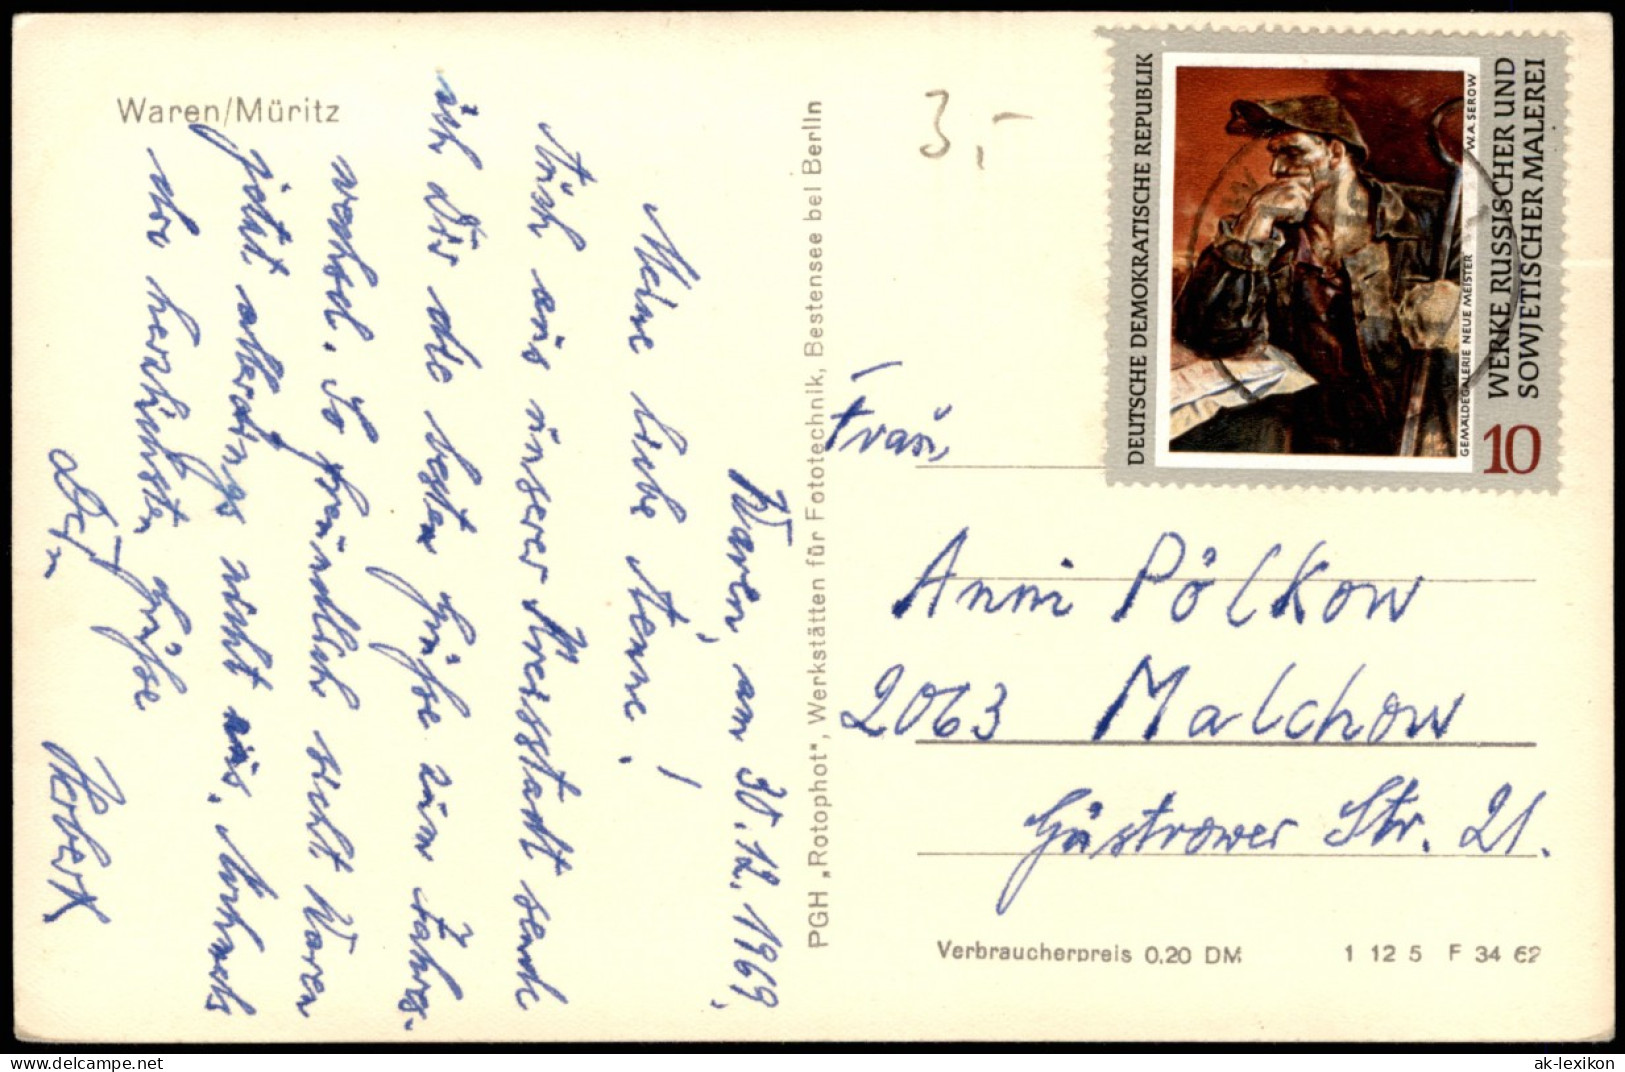 Waren/Müritz
3,-
Waren, am 30.12.1969.
Meine liebe Änne!
Auch aus unserer Kreisstadt sende
ich Dir die besten Grüße zum Jahres-
wechsel. So freundlich sieht Waren
jetzt allerdings nicht aus. Nochmals
die herzlichsten Grüße
Dein
Herbert
PGH „Rotophot", Werkstätten für Fototechnik, Bestensee bei Berlin
DEUTSCHE DEMOKRATISCHE REPUBLIK
W.A. SEROW
GEMÄLDEGALERIE NEUE MEISTER
WERKE RUSSISCHER UND
SOWJETISCHER MALEREI
10
Frau
Anni Pölkow
2063 Malchow
Güstrower Str. 21.
Verbraucherpreis 0,20 DM 1 12 5 F 34 62
www.delcampe.net
ak-lexikon